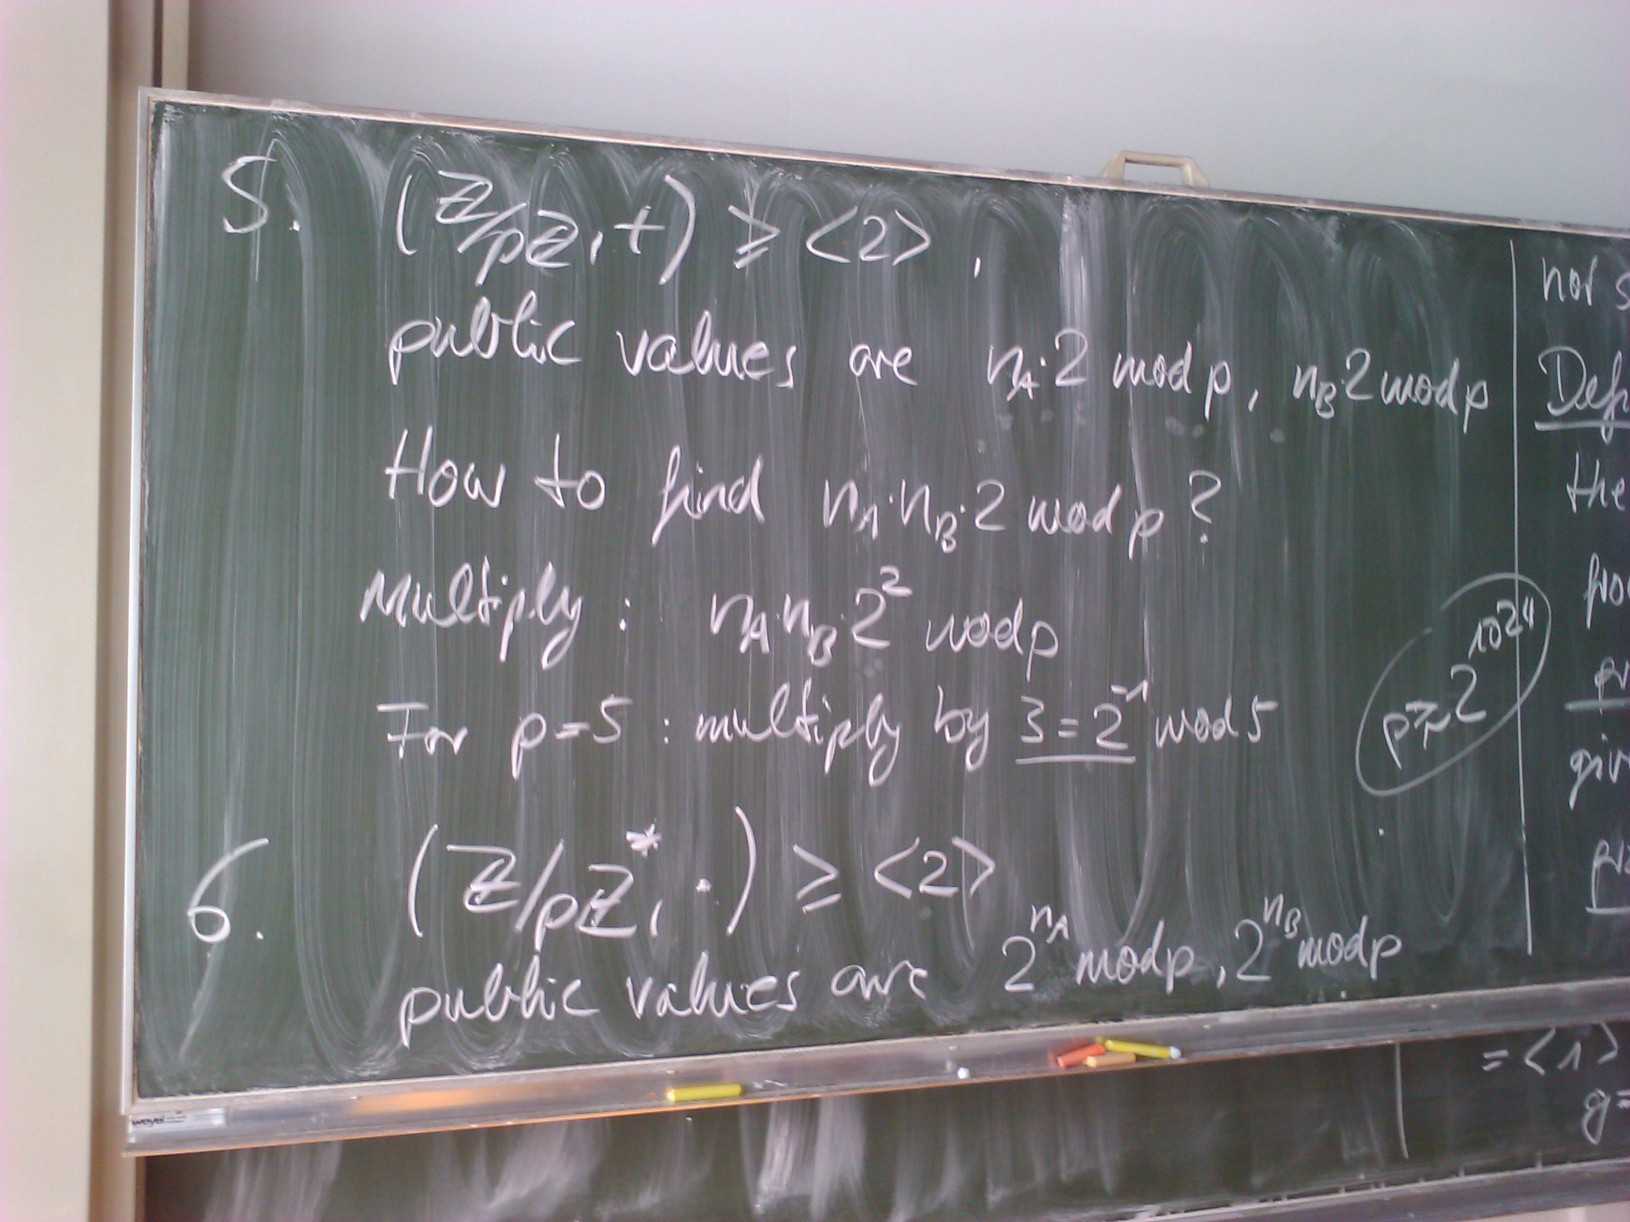 5. (Z/pZ, +) ≥ <2>,
public values are n_A·2 mod p, n_B·2 mod p
How to find n_A·n_B·2 mod p?
Multiply: n_A·n_B·2² mod p
For p=5: multiply by 3=2⁻¹ mod 5
p≈2¹⁰²⁴
6. (Z/pZ*, ·) ≥ <2>
public values are 2^{n_A} mod p, 2^{n_B} mod p
the
= <1>
g=